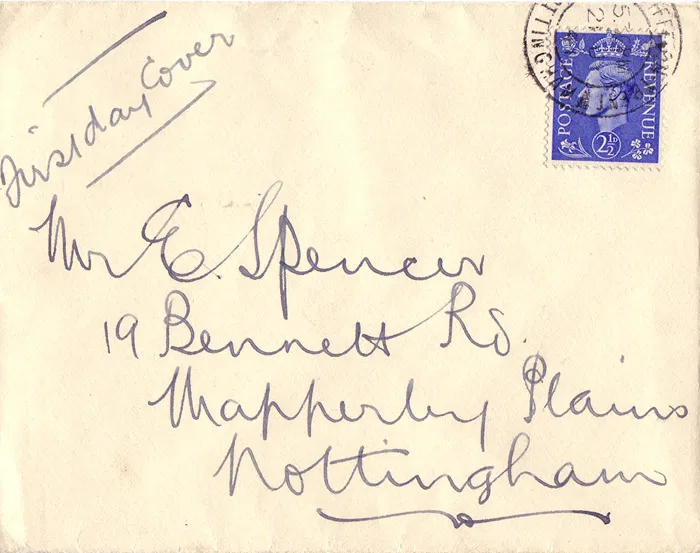 First day Cover
POSTAGE
REVENUE
2½D
Mr E. Spencer
19 Bennett Rd.
Mapperley Plains
Nottingham